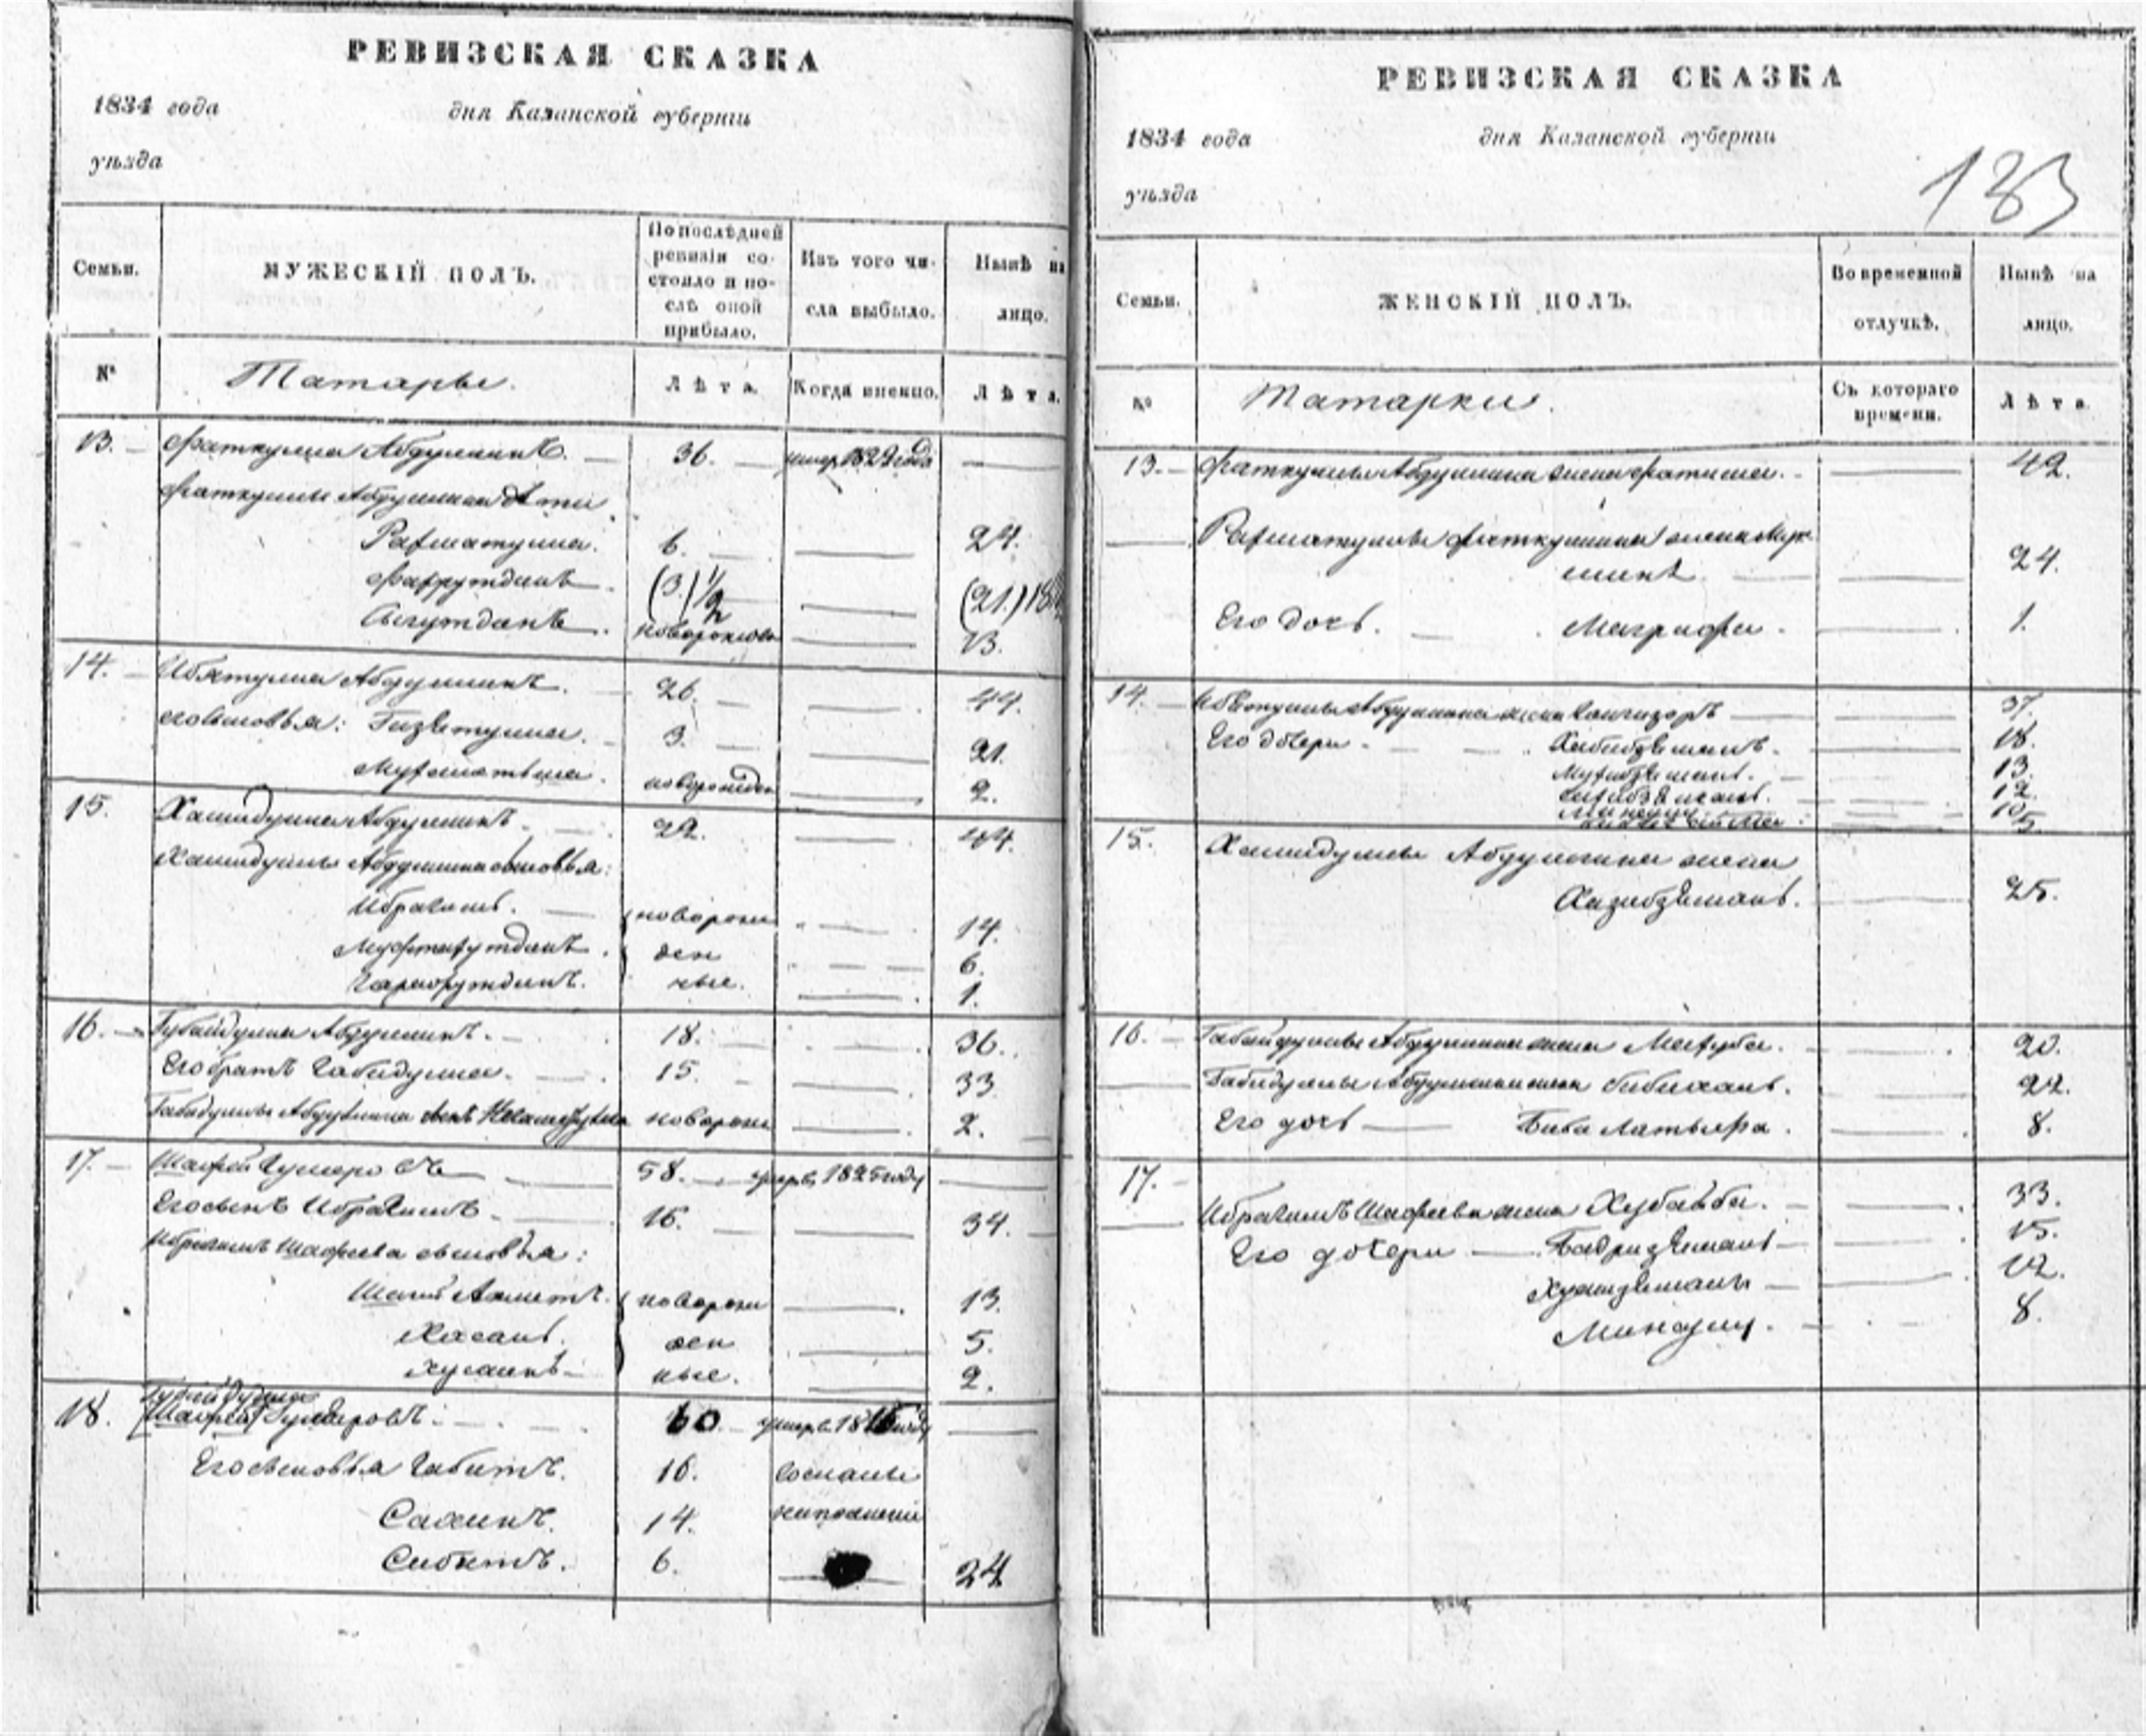 РЕВИЗСКАЯ СКАЗКА
1834 года дня Казанской губерніи
уѣзда
Семьи. МУЖЕСКІЙ ПОЛЪ. По послѣдней ревизіи состояло и послѣ оной прибыло. Изъ того числа выбыло. Нынѣ на лицо.
№ Татары. Лѣта. Когда именно. Лѣта.
13. Фаткулла Абдулинъ. 36. умер. 1828 года
Фаткуллы Абдулина дѣти
Рахматулла. 6. 24.
Фахрутдинъ. (3.) 1/2 (21.) 18
новорожден 13.
14. Ибятулла Абдулинъ. 26. 44.
его сыновья: Гизетулла. 3. 21.
новорожден 2.
15. Хамидулла Абдулинъ. 22. 44.
Хамидуллы Абдулина сыновья:
Ибрагимъ. новорож 14.
Муфтахутдинъ. ден 6.
ные. 1.
16. Губайдулла Абдулинъ. 18. 36.
Его братъ Габидулла. 15. 33.
Габидуллы Абдулина сынъ новорож 2.
17. Шафей Гумеровъ 58. умер в. 1825 году
Его сынъ Ибрагимъ. 16. 34.
Ибрагима Шафеева сыновья:
Шагиахметъ. новорож 13.
Хасанъ. ден 5.
Хусаинъ ные. 2.
18. (Шафей) Гумеровъ. 60. умер в. 18 году
Его сыновья Габитъ. 16. сосланы
Салимъ. 14. на поселеніе
Сибятъ. 6. 24
РЕВИЗСКАЯ СКАЗКА
1834 года дня Казанской губерніи
уѣзда
133
Семьи. ЖЕНСКІЙ ПОЛЪ. Во временной отлучкѣ. Нынѣ на лицо.
№ Татарки. Съ котораго времени. Лѣта
13. Фаткуллы Абдулина жена Фатима. 42.
Рахматуллы Фаткуллина жена
24.
Его дочь. Магрифа. 1.
14. Ибятуллы Абдулина жена 37.
Его дочери. Хабибземалъ. 18.
13.
12.
10
5.
15. Хамидуллы Абдулина жена
25.
16. Габайдуллы Абдулина жена Махуба. 20.
Габидуллы Абдулина жена Бибиханъ. 22.
Его дочь Биби Латыфа. 8.
17. Ибрагима Шафеева жена Хубайба. 33.
Его дочери Бадриземалъ 15.
12.
8.